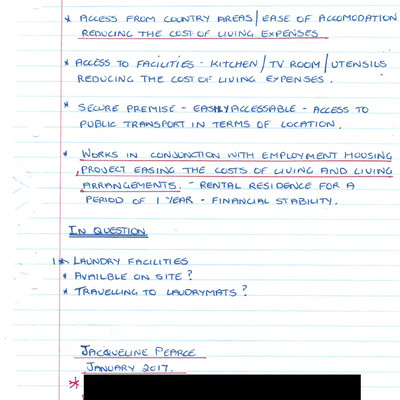 * ACCESS FROM COUNTRY AREAS / EASE OF ACCOMODATION
REDUCING THE COST OF LIVING EXPENSES
* ACCESS TO FACILITIES - KITCHEN / TV ROOM / UTENSILS
REDUCING THE COST OF LIVING EXPENSES.
* SECURE PREMISE - EASILY ACCESSABLE - ACCESS TO
PUBLIC TRANSPORT IN TERMS OF LOCATION.
* WORKS IN CONJUNCTION WITH EMPLOYMENT HOUSING
PROJECT EASING THE COSTS OF LIVING AND LIVING
ARRANGEMENTS. - RENTAL RESIDENCE FOR A
PERIOD OF 1 YEAR - FINANCIAL STABILITY.
IN QUESTION
1* LAUNDRY FACILITIES
* AVAILBLE ON SITE?
* TRAVELLING TO LAUDRYMATS?
JACQUELINE PEARCE
JANUARY 2017.
*